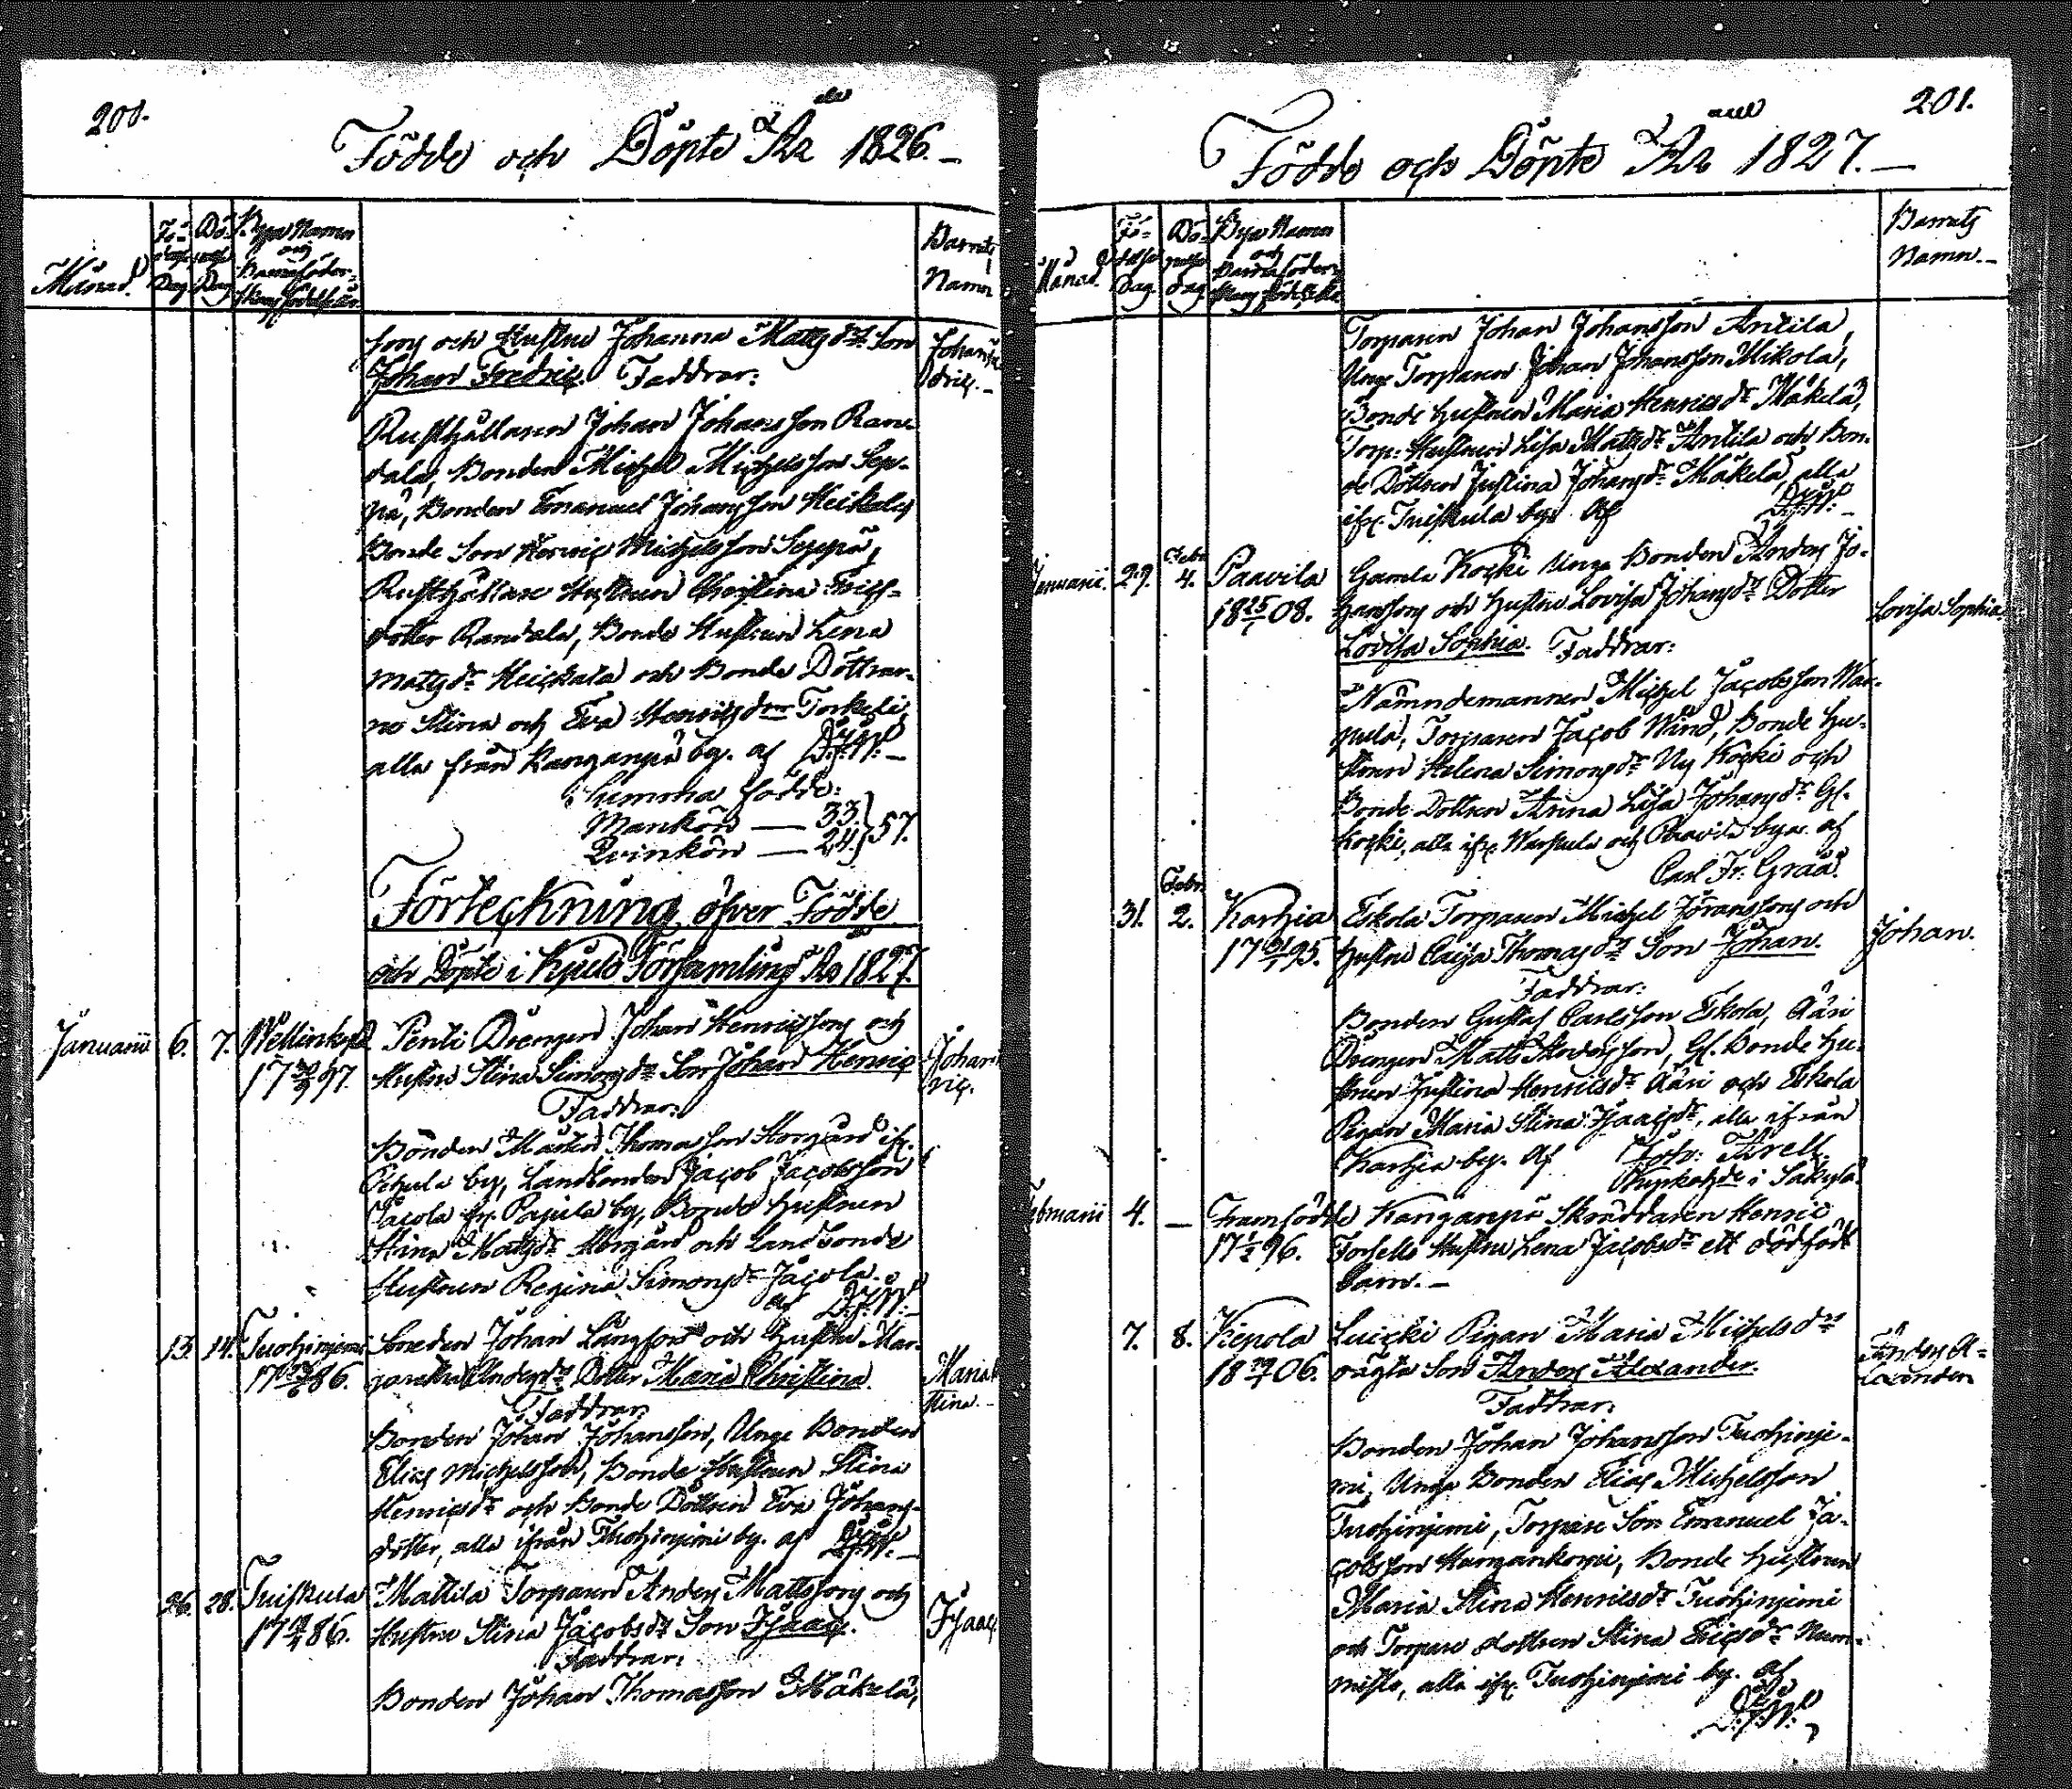 200.
Födde och Döpte År 1826.
Månad.
Fö-
Dö-
Byns Namn
Dag
Dag
och
Barnets
Namn
sons och Hustrus Johanna Matsdr Son
Johan Fredric. Faddrar:
Johan
dric.
Rusthållaren Johan Johansson Ran-
dala, Bonden Michel Michelsson Sep-
pä, Bonden Emanuel Johansson Heikola,
Bonde Son Henric Michelsson Seppä,
Rusthållare Hustrun Christina
dotter Randala, Bonde Hustrun Lena
Matsdr Heickola och Bonde Döttrar-
ne Stina och Eva Henricsdr Torkeli,
alla från Kanganpä by. af
Summa födde:
Mankön — 33.
Qvinkön — 24. } 57.
Förteckning öfver Födde
och Döpte i Kjulo Församling År 1827.
Januarii 6. 7. Penti Drengen Johan Henricssons och
17 97. Hustrus Stina Simonsdr Son Johan Henric
Johan
ric.
Faddrar:
Bonden Thomasson Storgård ifr.
by, Landbonden Jacob Jacobsson
Jacola fr. Pajula by, Bonde Hustrun
Stina Matsdr Storgård och Landbonde
Hustrun Regina Simonsdr Jacola.
af
13. 14. Tuohinjemi Smeden Johan Långfors och Hustrus Mar-
17 86. gareta Andersdr Dotter Maria Christina.
Maria
stina.
Faddrar:
Bonden Johan Johansson, Unge Bonden
Elias Michelsson, Bonde Hustrun Stina
Henricsdr och Bonde Dottren Eva Johans-
dotter, alla ifrån Tuohinjemi by. af
26. 28. Tuiskula Mattila Torparen Anders Mattssons och
17 86. Hustrus Stina Jacobsdr Son Isaac.
Isaac.
Faddrar:
Bonden Johan Thomasson Mäkelä,
201.
Födde och Döpte År 1827.
Månad.
Fö-
Dö-
Byns Namn
Dag.
Dag.
och
Barnets
Namn.
Torparen Johan Johansson Antila,
Unge Torparen Johan Johansson Mikola,
Bonde Hustrun Maria Henricsdr Mäkelä,
Torp. Hustrun Lisa Matsdr Antila och Bon-
de Dottren Justina Johansdr Mäkelä, alla
ifr. Tuiskula by. Af
Januarii. 29. Febr. 4. Paavila Gamla Kocki Unge Bonden Anders Jo-
18 08. hanssons och Hustrus Lovisa Johansdr Dotter
Lovisa Sophia. Faddrar:
Lovisa Sophia.
Nämndemannen Michel Jacobsson War-
pula, Torparen Jacob Wind, Bonde Hu-
strun Helena Simonsdr Ny Kocki och
Bonde Dottren Anna Lisa Johansdr Gl.
Kocki, alla ifr. Warpula och Paavila byar. af
Carl Fr. Graa.
31. Febr. 2. Karhia Eskola Torparen Michel Jöranssons och
17 95. Hustrus Caisa Thomasdr Son Johan.
Johan.
Faddrar:
Bonden Gustaf Carlsson Eskola, Ääri
Drengen Matts Andersson, Gl. Bonde Hu-
strun Justina Henricsdr Ääri och Eskola
Pigan Maria Stina Isaacsdr, alla ifrån
Karhia by. Af Joh:
i Säkylä.
Februarii 4. — Framfödde Kanganpä Skräddaren Henric
17 96. Forsells Hustru Lena Jacobsdr ett dödfödt
barn. —
7. 8. Kepola Luicki Pigan Maria Michelsdrs
18 06. oägta Son Anders Alexander.
Anders A-
lexander
Faddrar:
Bonden Johan Johansson Tuohinje-
mi, Unge Bonden Elias Michelsson
Tuohinjemi, Torpare Son Emanuel Ja-
cobsson, Bonde Hustrun
Maria Stina Henricsdr Tuohinjemi
och Torpare dottren Stina Ericsdr Num-
misto, alla ifr. Tuohinjemi by. af